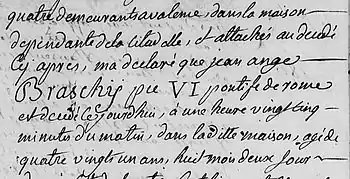 quatre demeurants a valence, dans la maison
dependante de la citadelle, et attachés au decedé
cy apres, m'a declaré que jean ange
Braschij pie VI pontife de rome
est decedé cejourdhui, à une heure vingt cinq
minutes du matin, dans la ditte maison, agé de
quatre vingt un ans, huit mois deux jours